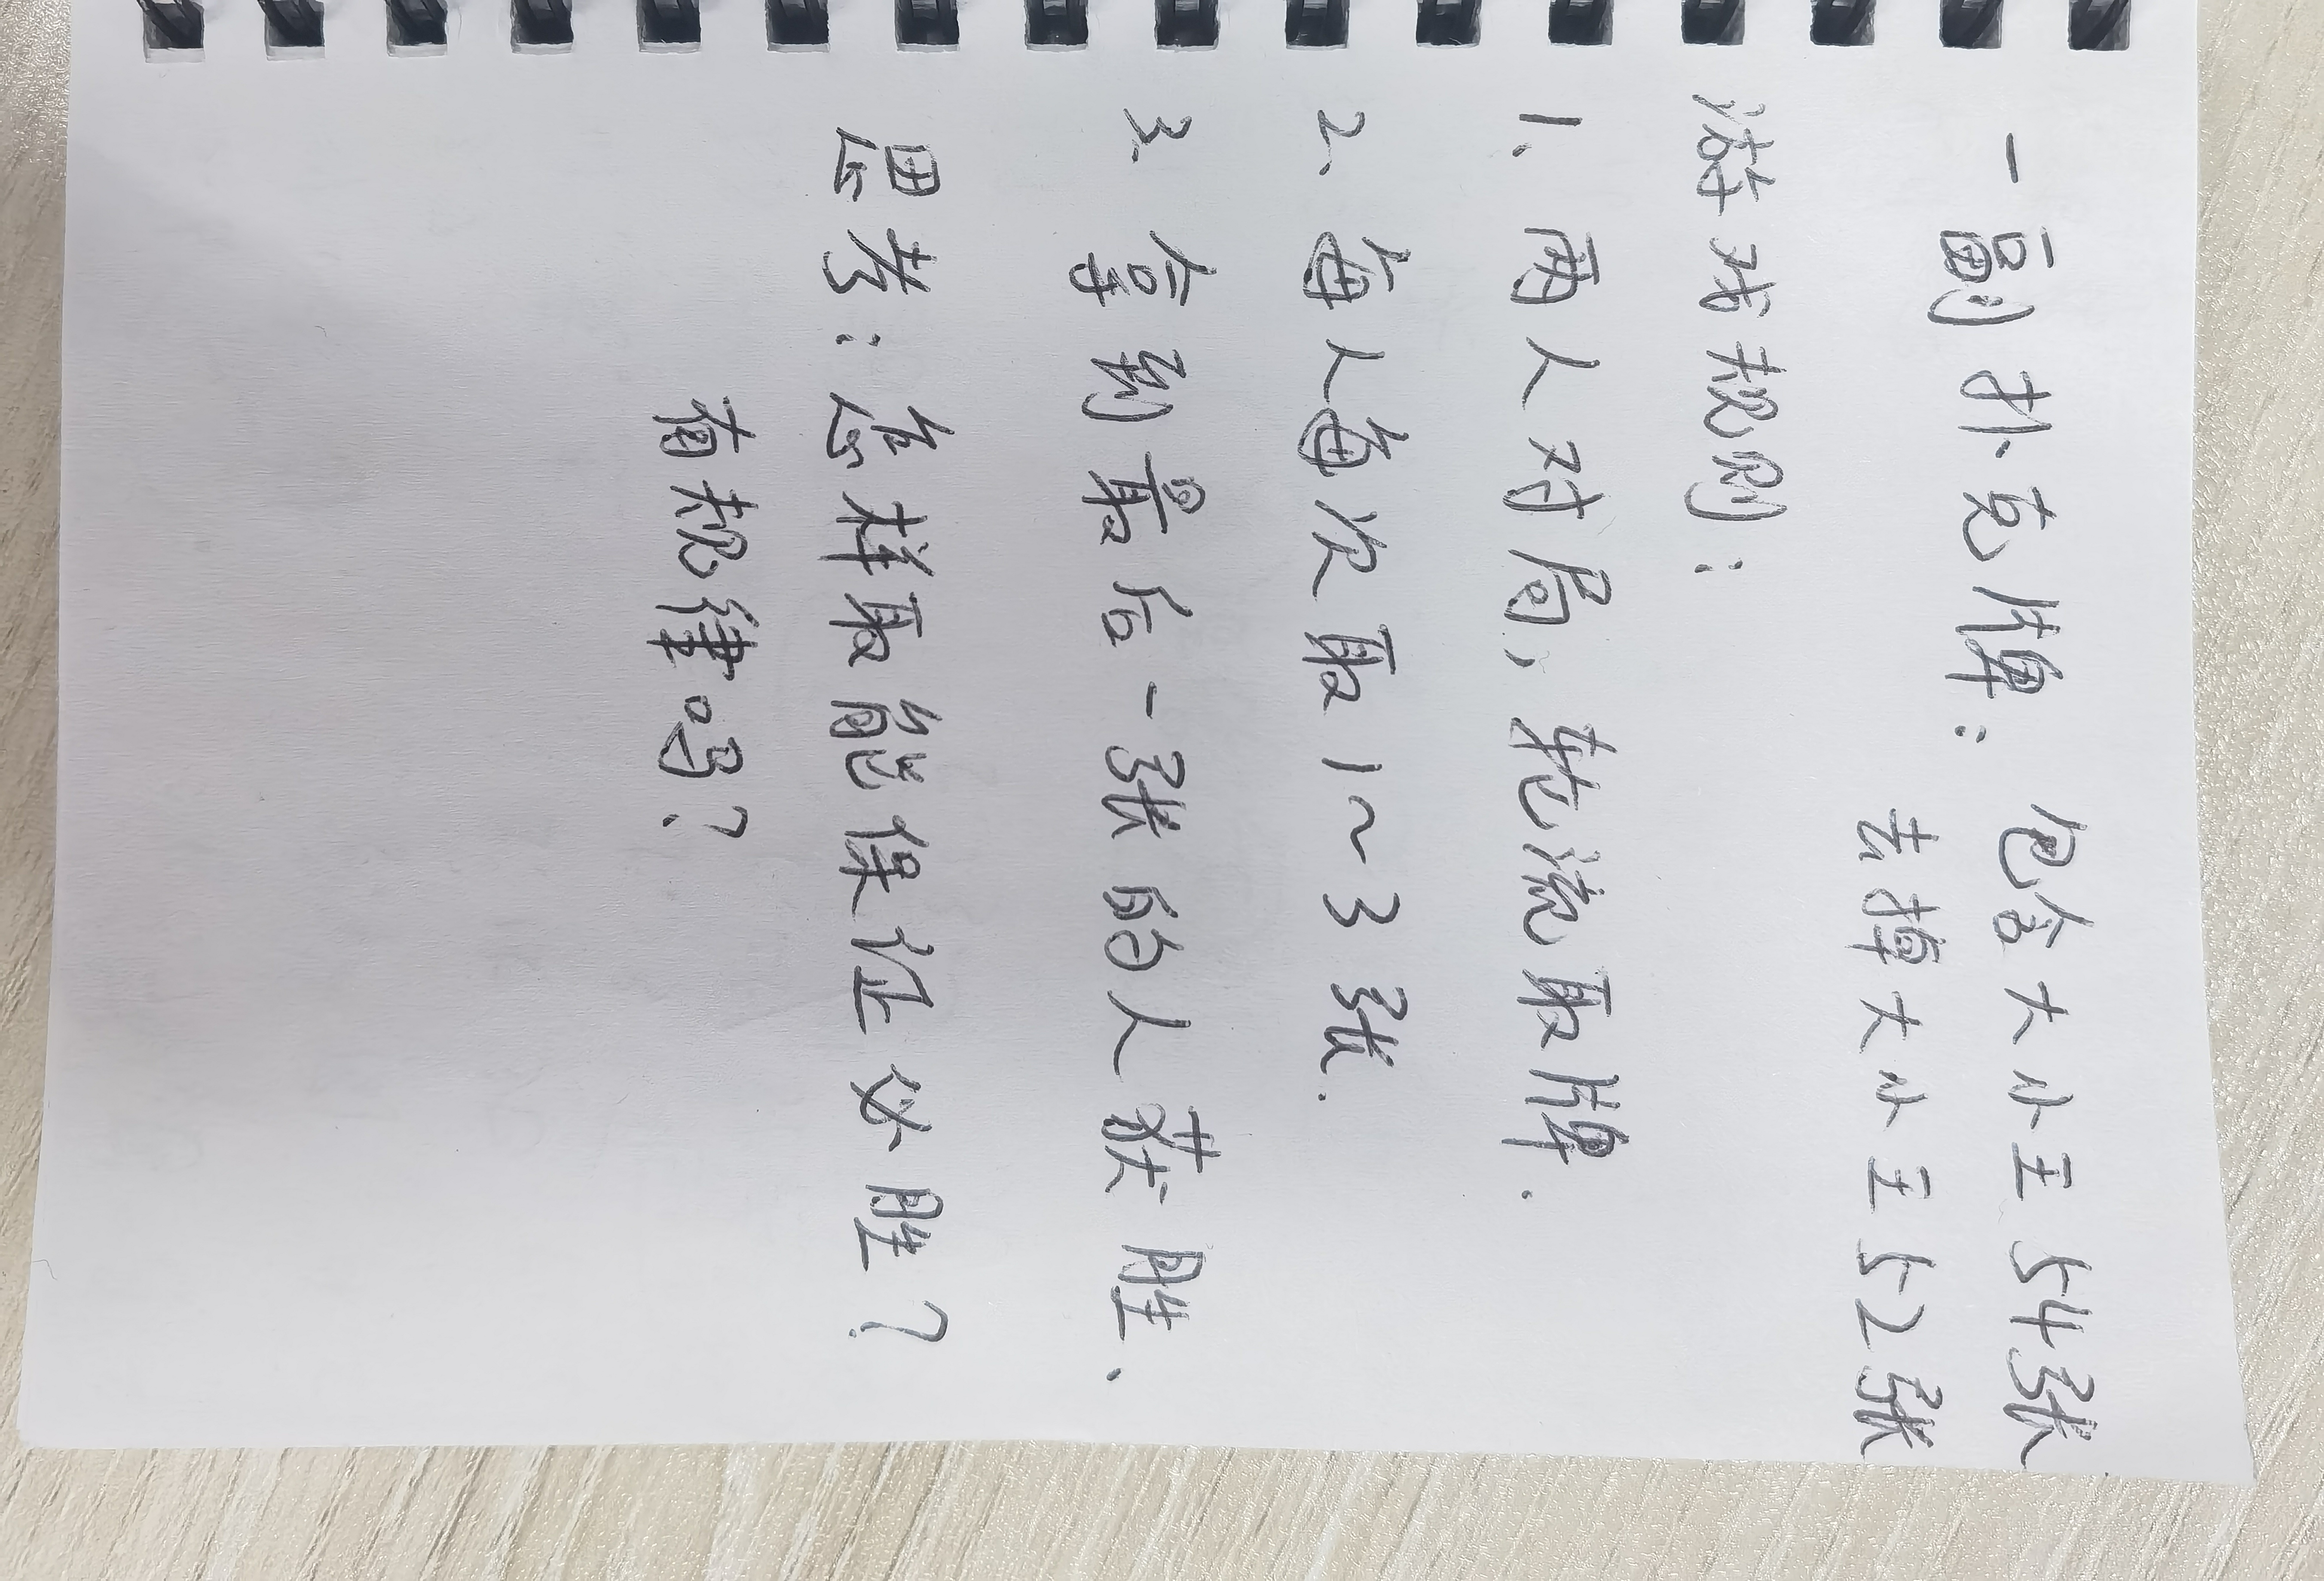 一副扑克牌：包含大小王54张
去掉大小王52张
游戏规则：
1、两人对局，轮流取牌.
2、每人每次取1~3张.
3、拿到最后一张的人获胜.
思考：怎样取能保证必胜？
有规律吗？